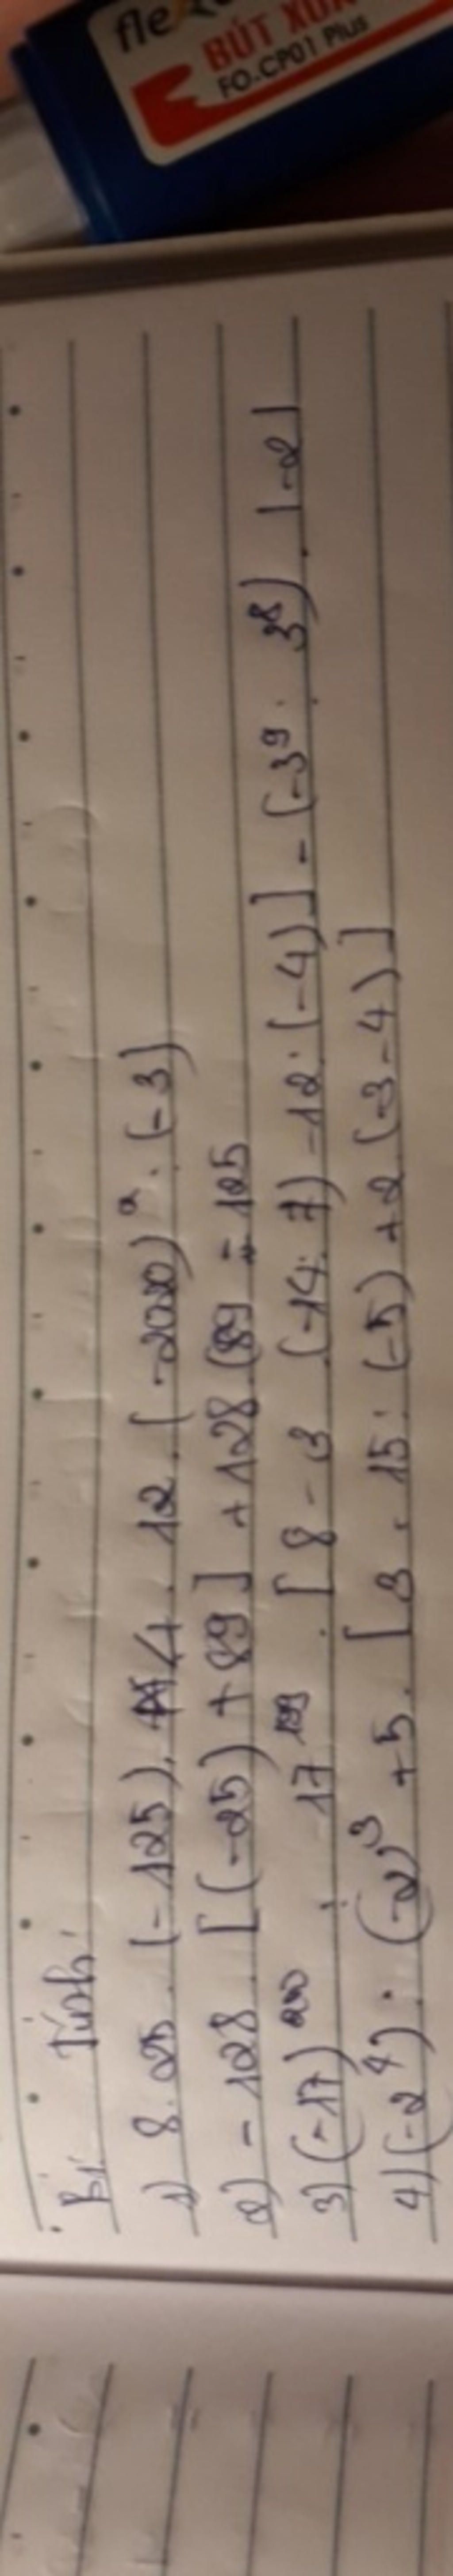 fle
BÚT XÓA
FO-CP01 Plus
B1: Tính:
1) 8 . 25 . (-125) . 4 . 12 . (-2020)² . (-3)
2) -128 . [(-25) + 89] + 128 . (89 - 125
3) (-17)²⁰⁰ : 17¹⁹⁹ . [8 - 3 . (-14 : 7) - 12 : (-4)] - (-3⁹ : 3⁸) . |-2|
4) (-2⁴) : (-2)³ + 5 . [3 . 15 : (-5) + 2 . (-3 - 4)]